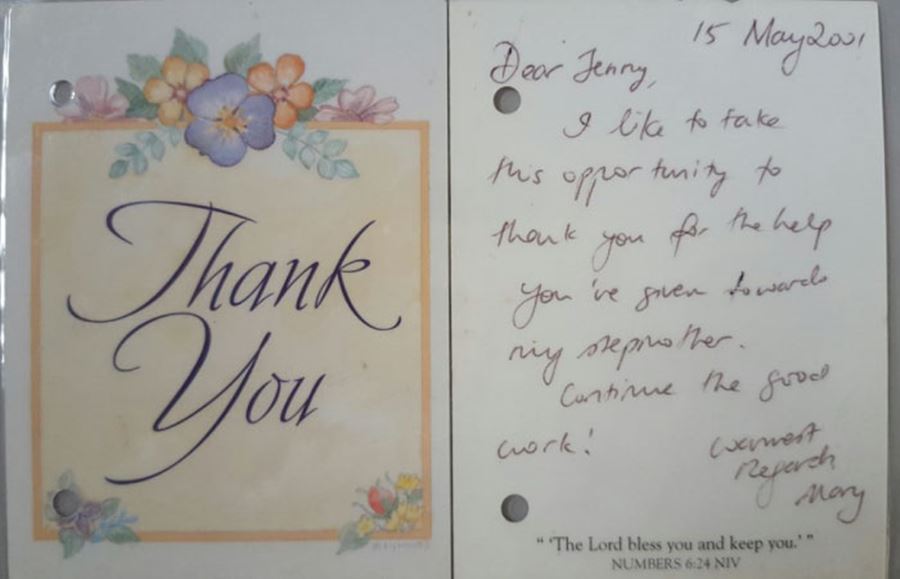 Thank
You
15 May 2001
Dear Jenny,
I like to take
this opportunity to
thank you for the help
you've given towards
my stepmother.
Continue the good
work!
Warmest
Regards
Mary
"'The Lord bless you and keep you.'"
NUMBERS 6:24 NIV